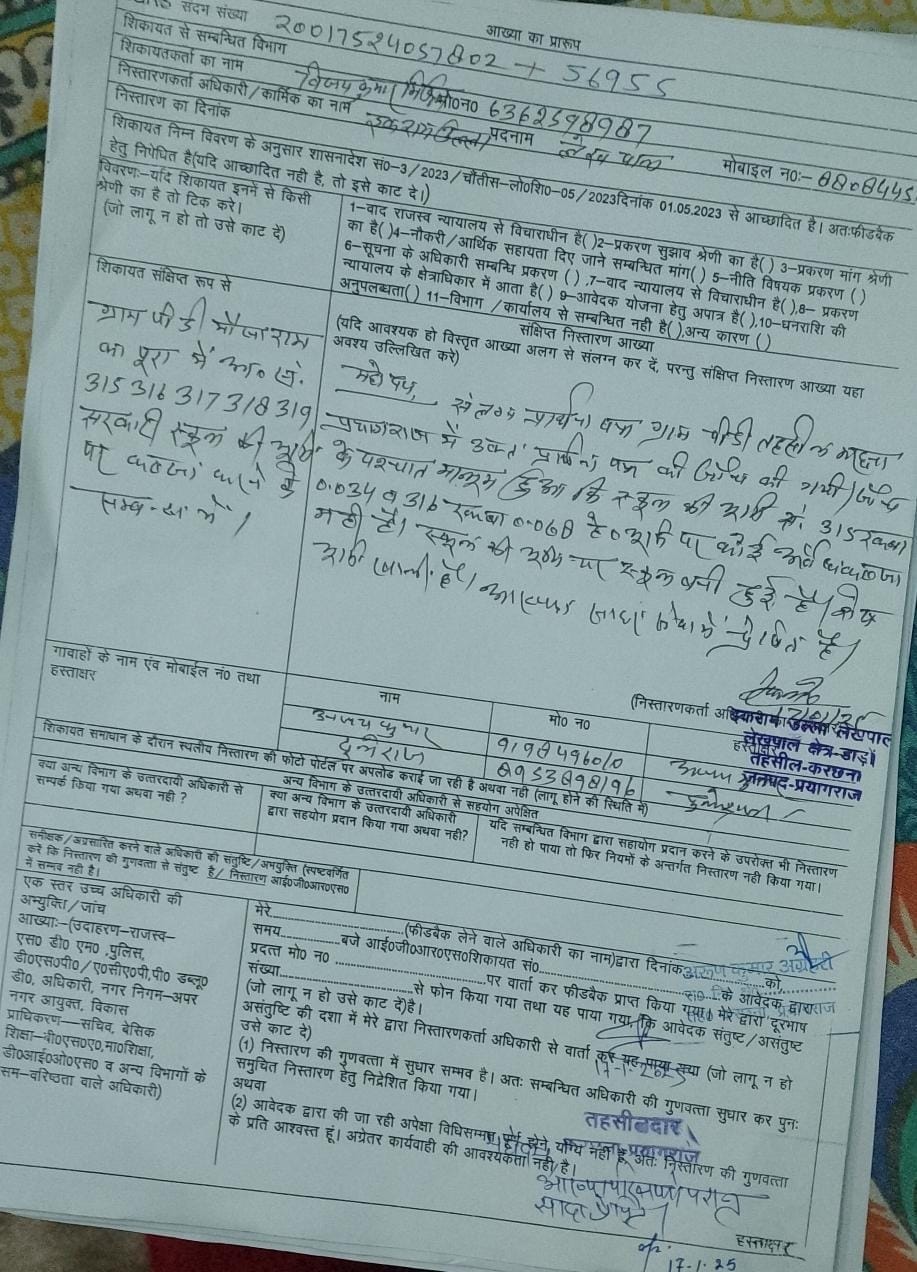 संदर्भ संख्या
आख्या का प्रारूप
शिकायत से सम्बन्धित विभाग
20017524057802 + 56955
शिकायतकर्ता का नाम
विजय कुमार मो0न0 6362598987
निस्तारणकर्ता अधिकारी/कार्मिक का नाम पदनाम लेखपाल मोबाइल न0:-
निस्तारण का दिनांक
शिकायत निम्न विवरण के अनुसार शासनादेश सं0-3/2023/चौंतीस-लो0शि0-05/2023दिनांक 01.05.2023 से आच्छादित है। अतःफीडबैक
हेतु निषेधित है(यदि आच्छादित नही है, तो इसे काट दे।)
विवरणः-यदि शिकायत इनमें से किसी
श्रेणी का है तो टिक करे।
(जो लागू न हो तो उसे काट दे)
1-वाद राजस्व न्यायालय से विचाराधीन है( )2-प्रकरण सुझाव श्रेणी का है( ) 3-प्रकरण मांग श्रेणी
का है( )4-नौकरी/आर्थिक सहायता दिए जाने सम्बन्धित मांग( ) 5-नीति विषयक प्रकरण ( )
6-सूचना के अधिकारी सम्बन्धि प्रकरण ( ) ,7-वाद न्यायालय से विचाराधीन है( ),8- प्रकरण
न्यायालय के क्षेत्राधिकार में आता है( ) 9-आवेदक योजना हेतु अपात्र है( ),10-धनराशि की
अनुपलब्धता( ) 11-विभाग /कार्यालय से सम्बन्धित नही है( ),अन्य कारण ( )
शिकायत संक्षिप्त रूप से
संक्षिप्त निस्तारण आख्या
(यदि आवश्यक हो विस्तृत आख्या अलग से संलग्न कर दें, परन्तु संक्षिप्त निस्तारण आख्या यहा
अवश्य उल्लिखित करे)
ग्राम पीडी मौजा राम
का पूरा में आ0 सं.
315 316 317 318 319
सरकारी स्कूल की आराजी
पर कब्जा करने के
सम्बन्ध में।
महोदय,
संलग्न प्रार्थना पत्र ग्राम पीडी तहसील करछना
प्रयागराज में उक्त प्रार्थना पत्र की जाँच की गयी। जाँच
के पश्चात मालूम हुआ कि स्कूल की आराजी सं. 315 रकबा
0.034 व 316 रकबा 0.068 है0 आराजी पर कोई अवैध कब्जा
नही है। स्कूल की आराजी पर स्कूल बनी हुई है। शेष
आराजी खाली है। आख्या सादर सेवा में प्रेषित है।
(निस्तारणकर्ता
लेखपाल
लेखपाल क्षेत्र-डाडों
तहसील-करछना
जनपद-प्रयागराज
गावाहों के नाम एंव मोबाईल नं0 तथा
हस्ताक्षर
नाम
मो0 न0
अजय कुमार
9198496010
8953898196
शिकायत समाधान के दौरान स्थलीय निस्तारण की फोटो पोर्टल पर अपलोड कराई जा रही है अथवा नही (लागू होने की स्थिति में)
क्या अन्य विभाग के उत्तरदायी अधिकारी से
सम्पर्क किया गया अथवा नही ?
अन्य विभाग के उत्तरदायी अधिकारी से सहयोग अपेक्षित
क्या अन्य विभाग के उत्तरदायी अधिकारी
द्वारा सहयोग प्रदान किया गया अथवा नही?
यदि सम्बन्धित विभाग द्वारा सहायोग प्रदान करने के उपरोक्त भी निस्तारण
नही हो पाया तो फिर नियमों के अन्तर्गत निस्तारण नही किया गया।
समीक्षक/अग्रसारित करने वाले अधिकारी की संतुष्टि/अभयुक्ति (स्पष्टवर्णित
करे कि निस्तारण की गुणवत्ता से संतुष्ट है/ निस्तारण आई0जी0आर0एस0
में सम्भव नही है।
एक स्तर उच्च अधिकारी की
अभ्युक्ति/जांच
आख्याः-(उदाहरण-राजस्व-
एस0 डी0 एम0 ,पुलिस,
डी0एस0पी0/ए0सी0ए0पी,पी0 डब्लू0
डी0, अधिकारी, नगर निगम-अपर
नगर आयुक्त, विकास
प्राधिकरण-सचिव, बेसिक
शिक्षा-बी0एस0ए0,मा0शिक्षा,
डी0आई0ओ0एस0 व अन्य विभागों के
सम-वरिष्ठता वाले अधिकारी)
मेरे..................(फीडबैक लेने वाले अधिकारी का नाम)द्वारा दिनांक अरूण कुमार अग्रहरी
समय..........बजे आई0जी0आर0एस0शिकायत सं0..................को
प्रदत्त मो0 न0 ..................के आवेदक द्वारा
संख्या..................पर वार्ता कर फीडबैक प्राप्त किया गया। मेरे द्वारा दूरभाष
से फोन किया गया तथा यह पाया गया, कि आवेदक संतुष्ट/असंतुष्ट
(जो लागू न हो उसे काट दें)है।
असंतुष्टि की दशा में मेरे द्वारा निस्तारणकर्ता अधिकारी से वार्ता कर यह पाया गया (जो लागू न हो
उसे काट दे)
17-1-2025
(1) निस्तारण की गुणवत्ता में सुधार सम्भव है। अतः सम्बन्धित अधिकारी की गुणवत्ता सुधार कर पुनः
समुचित निस्तारण हेतु निदेशित किया गया।
अथवा
तहसीलदार
(2) आवेदक द्वारा की जा रही अपेक्षा विधिसम्मत पूर्ण होने योग्य नही है, अतः निस्तारण की गुणवत्ता
के प्रति आश्वस्त हूं। अग्रेतर कार्यवाही की आवश्यकता नही है।
सादर प्रेषित
हस्ताक्षर
17-1-25